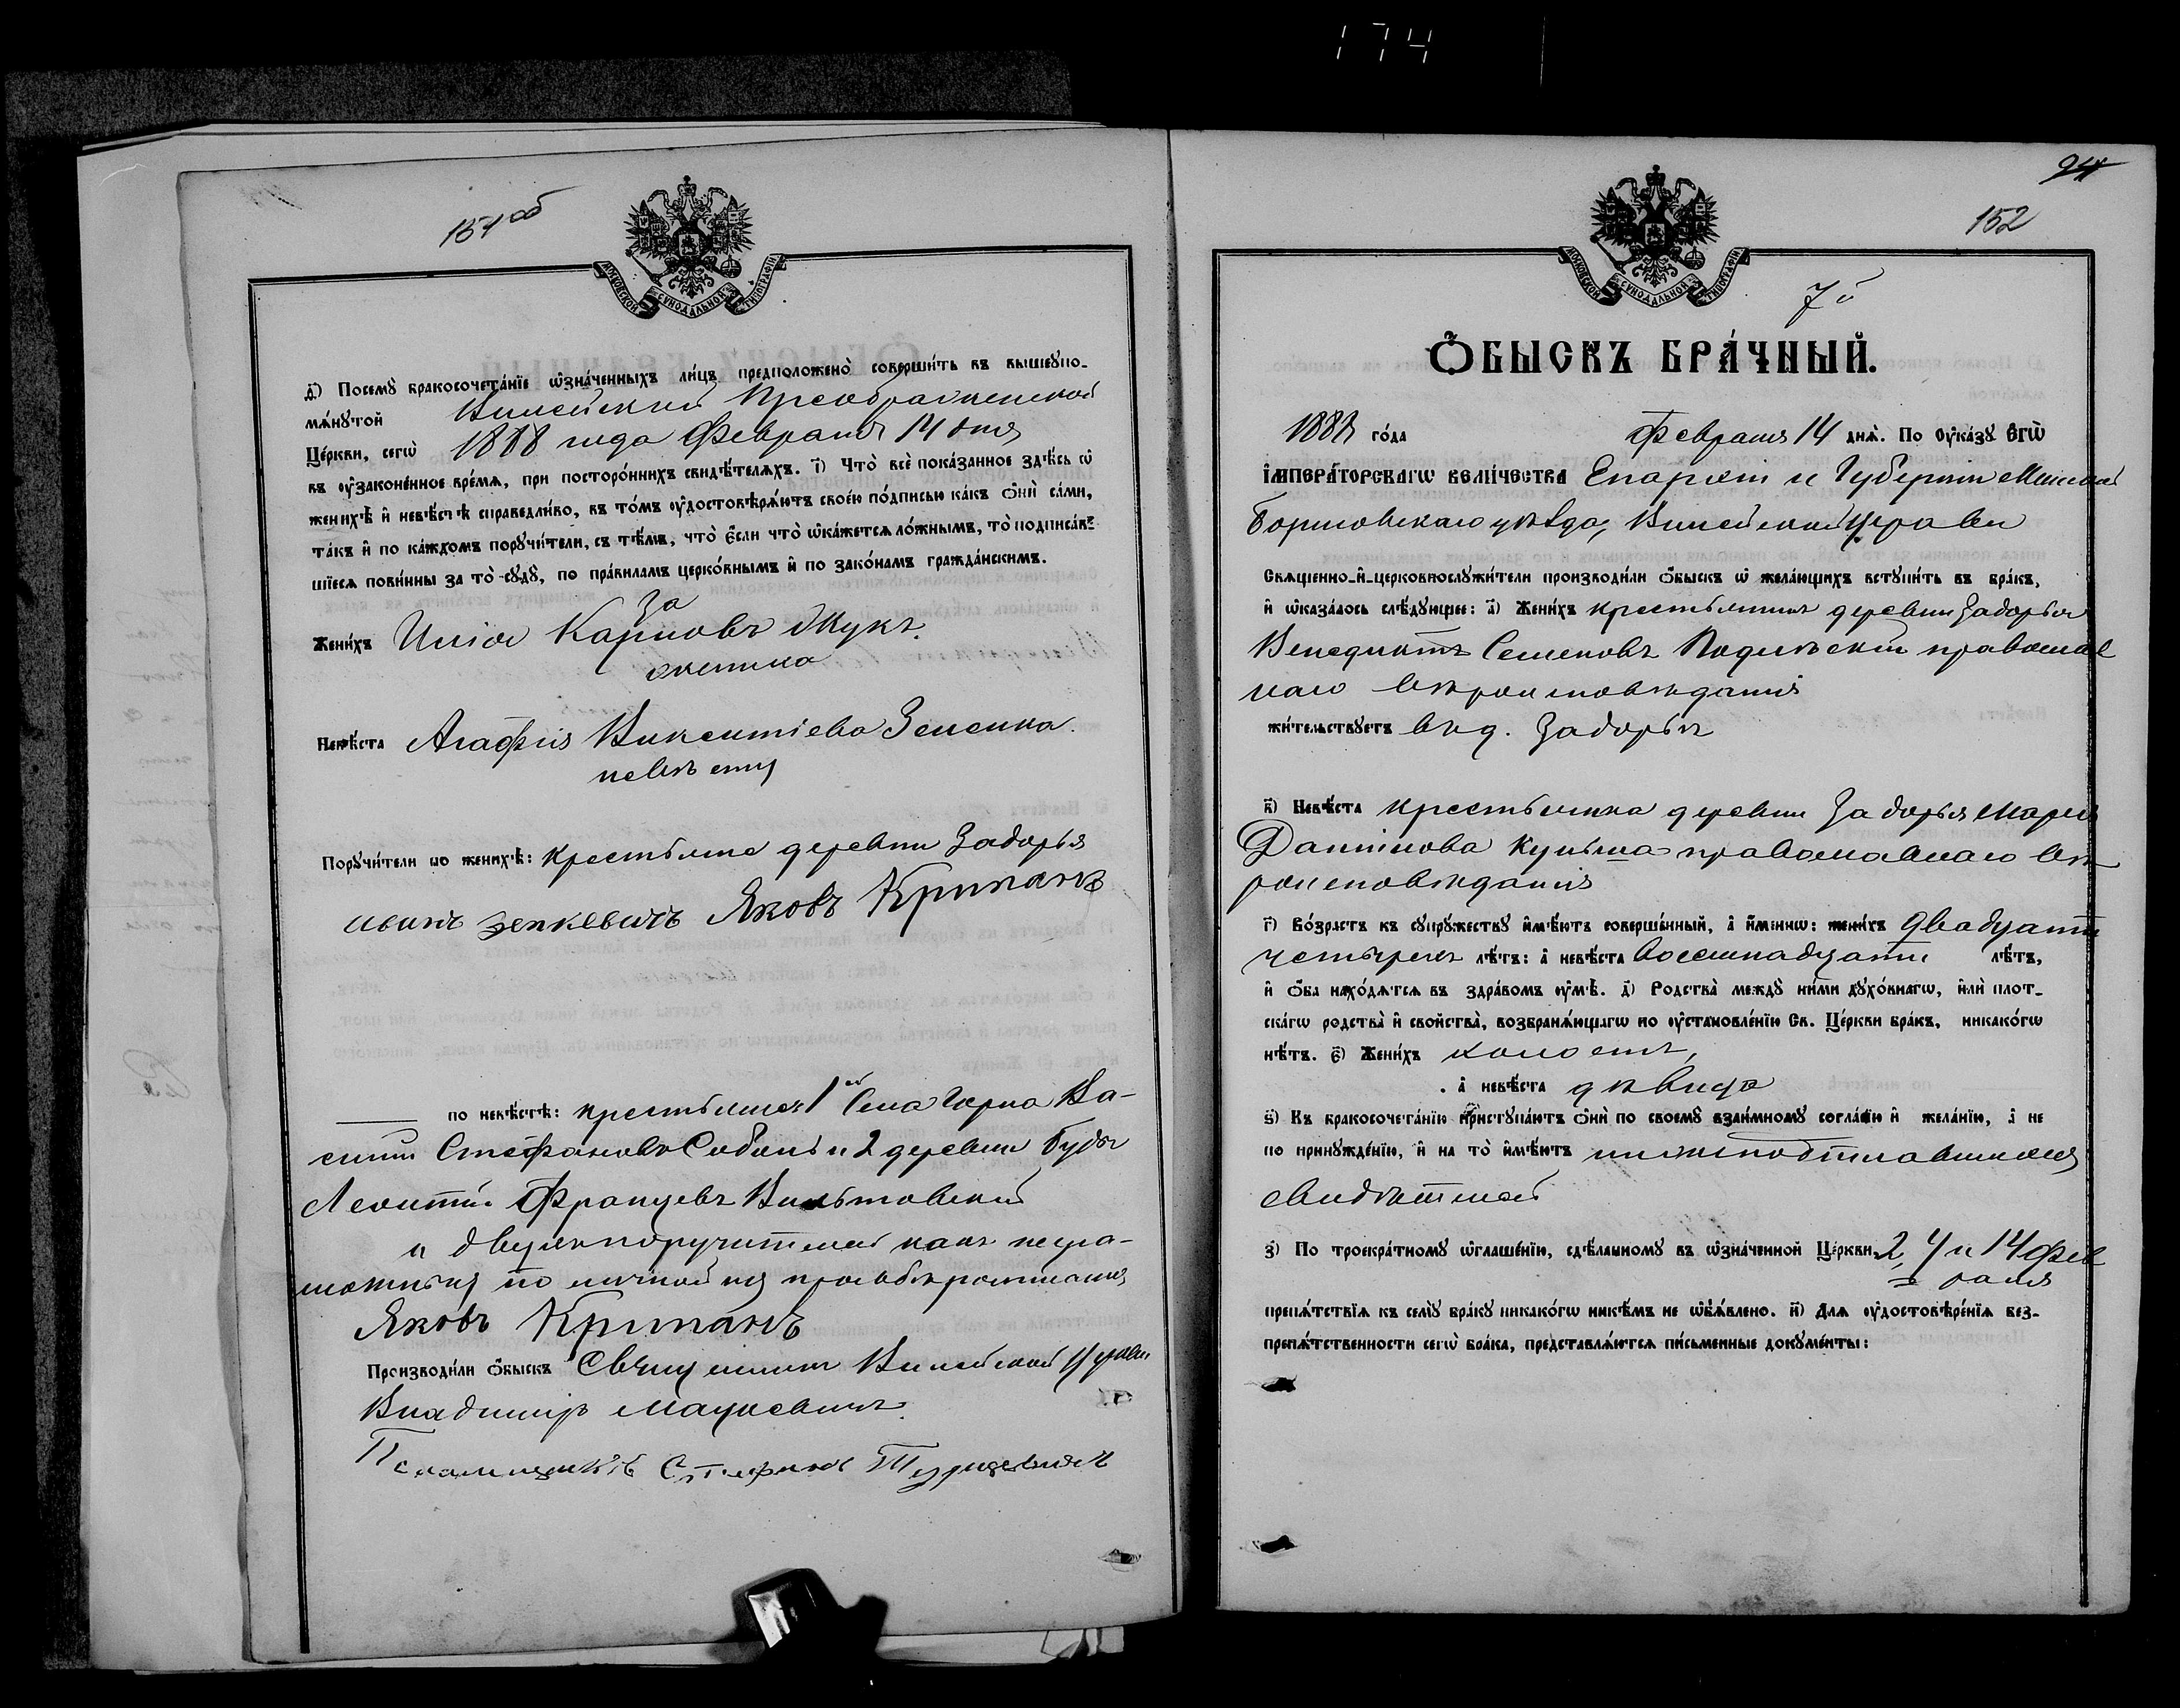 174
151 об
МОСКОВСКОЙ СѴНОДАЛЬНОЙ ТИПОГРАФІИ
д҃) Посемꙋ̀ бракосочета́нїе ѡ҆зна́ченныхъ ли́цъ предположено̀ соверши́ть въ вышеꙋпо-
мѧ́нꙋтой Вилейской Преображенской
Це́ркви, сегѡ̀ 1888 года Февраля 14 дня
въ ᲂу҆зако́ненное вре́мѧ, при посторо́ннихъ свидѣ́телѧхъ. і҃) Что̀ всѐ пока́занное здѣ́сь ѡ҆
женихѣ̀ и҆ невѣ́стѣ справедли́во, въ то́мъ ᲂу҆достовѣрѧ́ютъ свое́ю по́дписью ка́къ ѻ҆нѝ са́ми,
та́къ и҆ по ка́ждомъ порꙋчи́тели, съ тѣ́мъ, что̀ є҆́сли что̀ ѡ҆ка́жетсѧ ло́жнымъ, то̀ подписа́в-
шїесѧ пови́нны за то̀ сꙋдꙋ̀, по пра́виламъ церко́внымъ и҆ по зако́намъ гражда́нскимъ.
Жени́хъ Илія Карповъ Жукъ.
За
жениха
Невѣ́ста Агафія Викентіева Зененка.
невѣсту
Порꙋчи́тели по женихѣ̀: крестьяне деревни Задорья
иванъ зенкевичъ Яковъ Крипанъ
по невѣ́стѣ: крестьяне 1й Села Горна Ва-
силій Стефановъ Соболь и 2 деревни Буды
Леонтій Францевъ Вильтовскій
и двухъ поручителей какъ негра-
мотныхъ по личной ихъ прозьбѣ росписался
Яковъ Крипанъ
Производи́ли ѻ҆́быскъ Священникъ Вилейской Церкви
Владиміръ Мацкевичъ.
Псаломщикъ Стефанъ
94
152
МОСКОВСКОЙ СѴНОДАЛЬНОЙ ТИПОГРАФІИ
7й
Ѻ҆БЫСКЪ БРА́ЧНЫЙ.
1888 го́да Февраля 14 днѧ̀. По ᲂу҆ка́зꙋ Є҆гѡ̀
І҆МПЕРА́ТОРСКАГѠ ВЕЛИ́ЧЕСТВА Епархіи и Губерніи Минской
Борисовскаго уѣзда, Вилейской церкви
Свѧще́нно-и҆-церковнослꙋжи́тели производи́ли ѻ҆́быскъ ѡ҆ жела́ющихъ встꙋпи́ть въ бра́къ,
и҆ ѡ҆каза́лось слѣ́дꙋющее: а҃) Жени́хъ крестьянинъ деревни Задорья
Венедиктъ Семеновъ Подлѣскій православ
наго вѣроисповѣданія
жи́тельствꙋетъ въ д. Задорья
в҃) Невѣ́ста крестьянка деревни Задорья Марія
Даніилова Кульша православнаго вѣ
роисповѣданія
г҃) Во́зрастъ къ сꙋпрꙋ́жествꙋ и҆мѣ́ютъ соверше́нный, а҆ и҆́меннѡ: жени́хъ двадцати
четырехъ лѣ́тъ: а҆ невѣ́ста восемнадцати лѣ́тъ,
и҆ ѻ҆́ба нахо́дѧтсѧ въ здра́вомъ ᲂу҆мѣ̀. д҃) Родства̀ междꙋ̀ ни́ми дꙋхо́внагѡ, и҆лѝ плот-
ска́гѡ родства̀ и҆ сво́йства, возбранѧ́ющагѡ по ᲂу҆становле́нїю Св. Це́ркви бра́къ, никако́гѡ
нѣ́тъ. є҃) Жени́хъ холостъ,
а҆ невѣ́ста дѣвица
ѕ҃) Къ бракосочета́нїю пристꙋпа́ютъ ѻ҆нѝ по своемꙋ̀ взаи́мномꙋ согла́сїю и҆ жела́нїю, а҆ не
по принꙋжде́нїю, и҆ на то̀ и҆мѣ́ютъ нижеподписавшихся
свидѣтелей
з҃) По троекра́тномꙋ ѡ҆глаше́нїю, сдѣ́ланномꙋ въ ѡ҆зна́ченной Це́ркви 2, 7 и 14 Фев
раля
препѧ́тствїѧ къ семꙋ̀ бра́кꙋ никако́гѡ никѣ́мъ не ѡ҆бъѧ́влено. и҃) Длѧ ᲂу҆достовѣре́нїѧ без-
препѧ́тственности сегѡ̀ бра́ка, представлѧ́ютсѧ пи́сьменные докꙋме́нты: